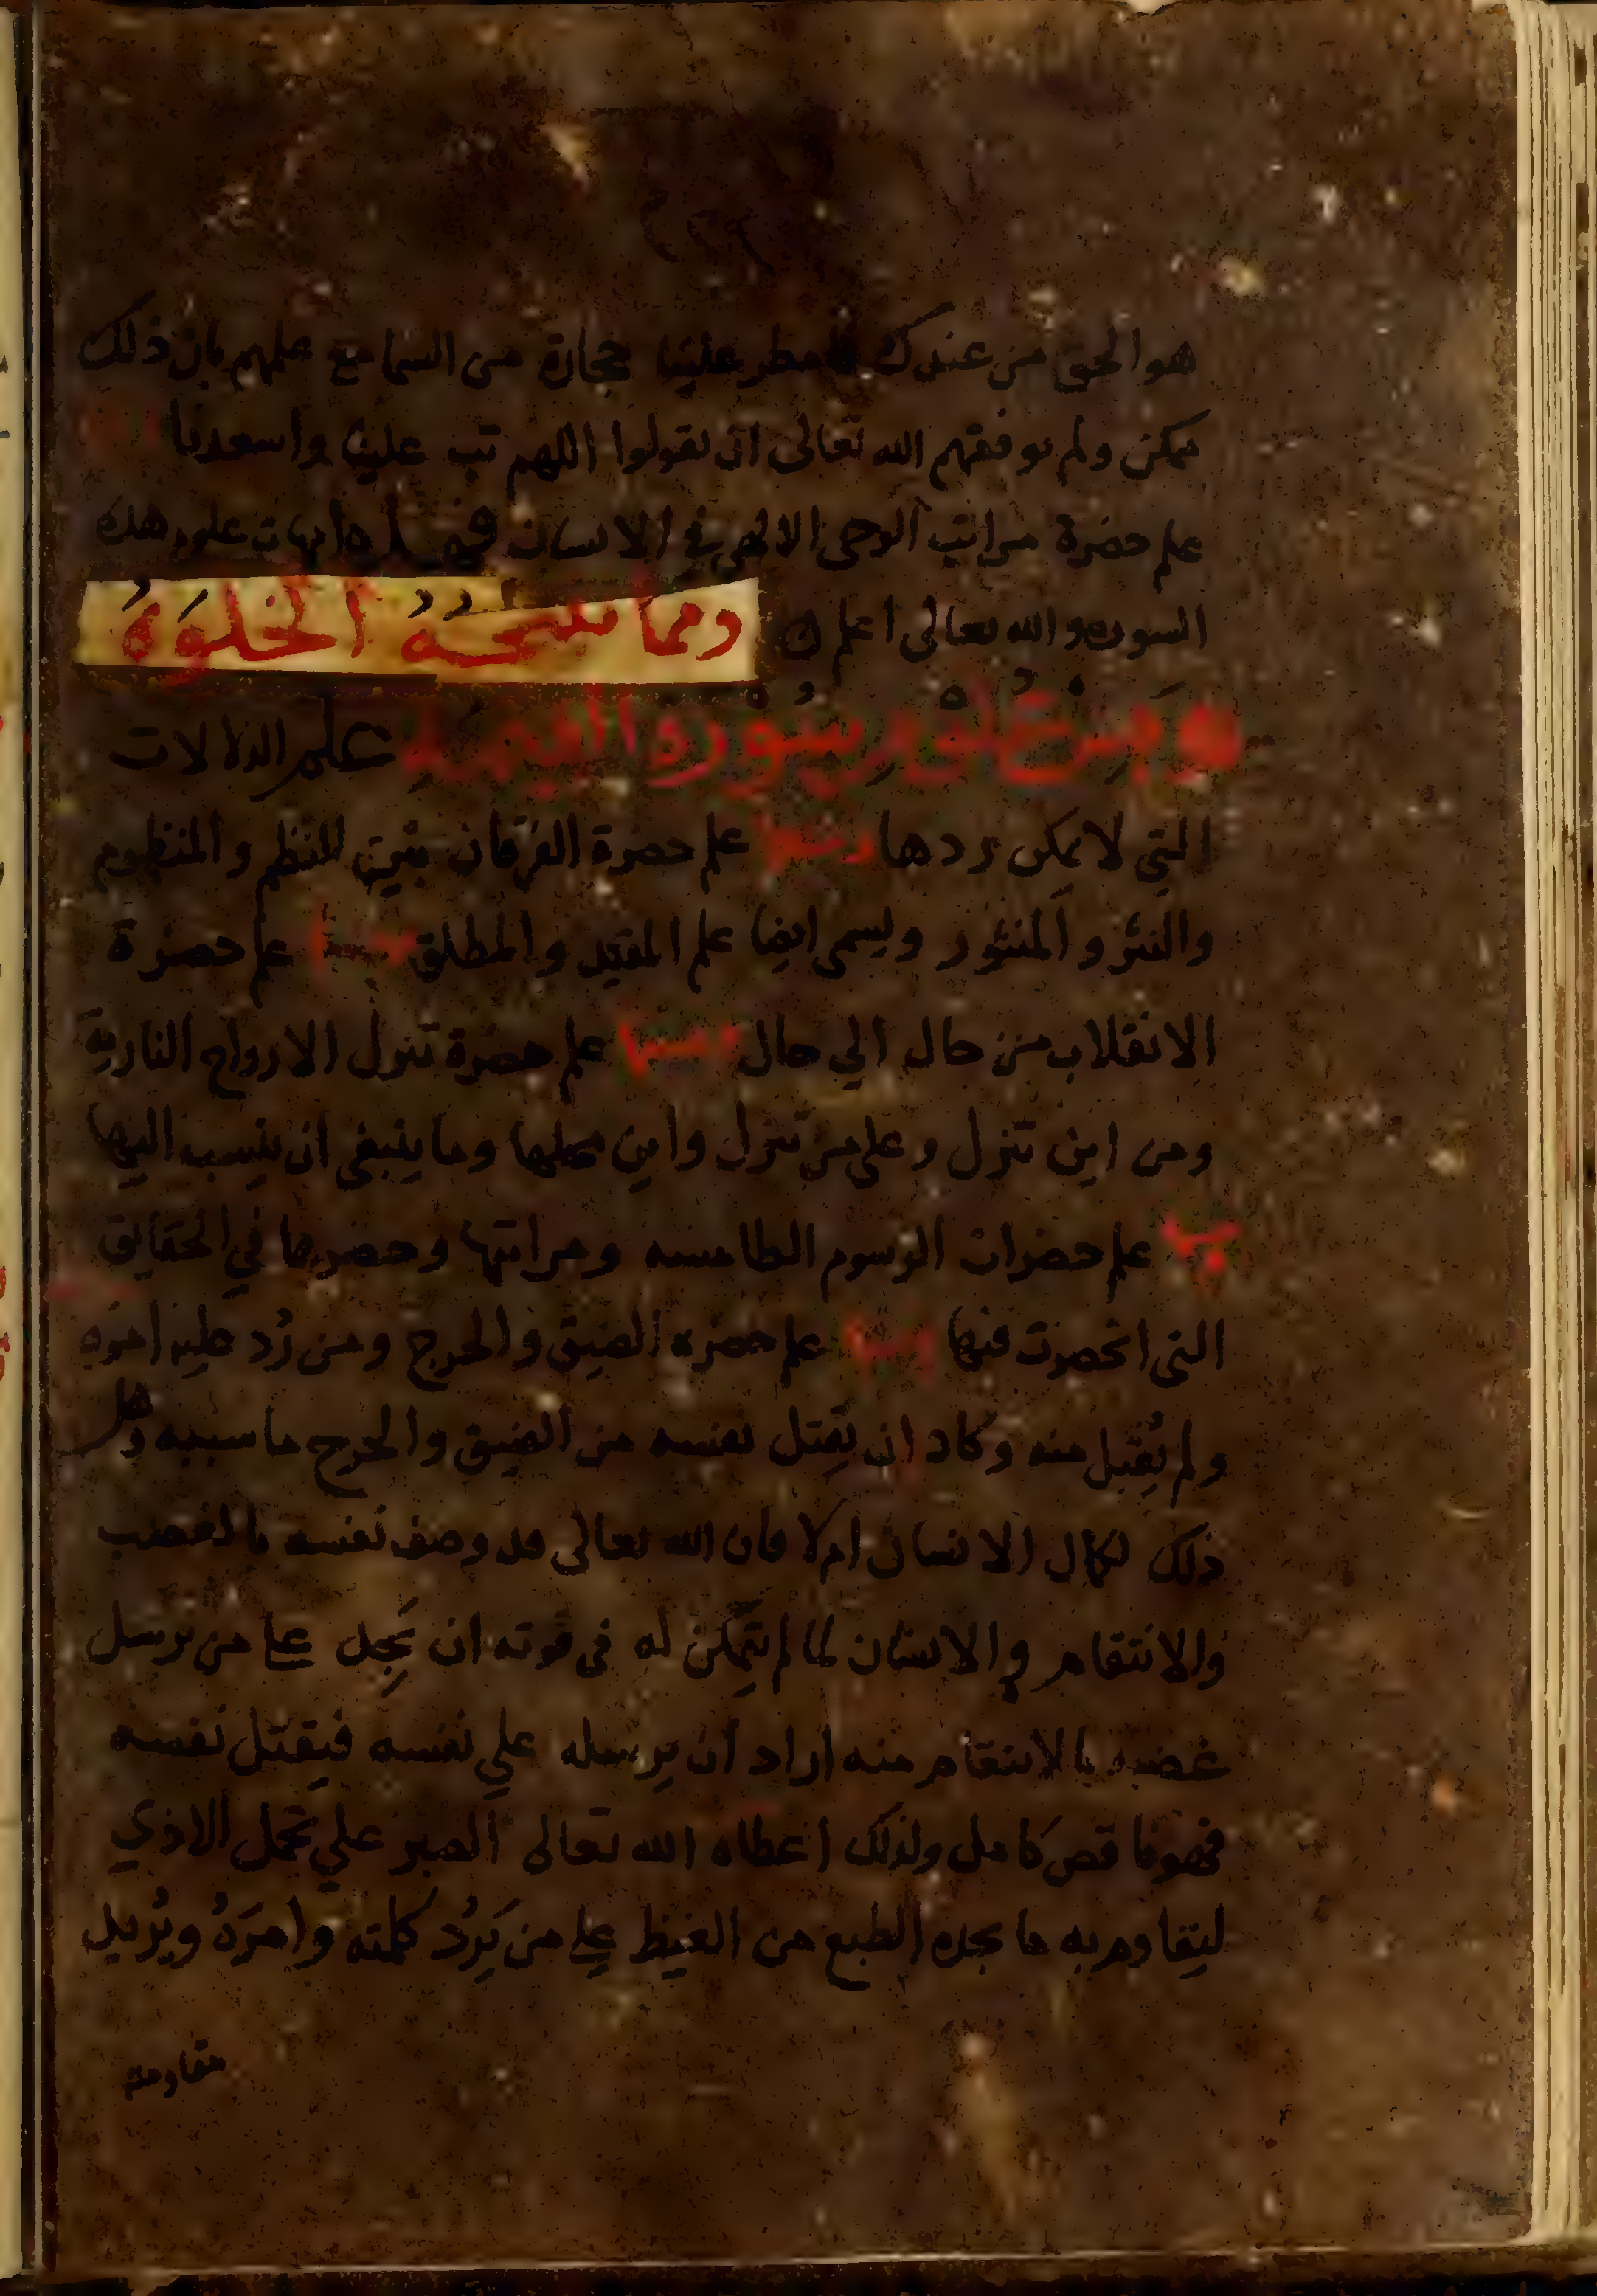 هو الحق من عندك فامطر علينا حجارة من السما مع علمهم بان ذلك
ممكن ولم يوفقهم الله تعالى ان يقولوا اللهم تب علينا واسعدنا
علم حضرة مراتب الوحى الالهى في الانسان فهذه امهات علوم هذه
السوره والله تعالى اعلم
ومما تنتجه الخلوة
سورة علم الدلالات
التي لا يمكن ردها ومنها علم حضرة الفرقان بين النظم والمنظوم
والنثر والمنثور ويسمى ايضا علم المقيد والمطلق ومنها علم حضرة
الانقلاب من حال الي حال ومنها علم حضرة تنزل الارواح النارية
ومن اين تنزل وعلى من تنزل واين محلها وما ينبغي ان ينسب اليها
علم حضرات الرسوم الطامسه ومراتبها وحصرها في الحقايق
التى انحصرت فيها ومنها علم حضره الضيق والحرج ومن رُد عليه امره
ولم يُقبل منه وكاد ان يقتل نفسه من الضيق والحرج ما سببه وهل
ذلك لكمال الانسان ام لا فان الله تعالى قد وصف نفسه بالغضب
والانتقام والانسان لما لم يتمكن له في قوته ان يجد على من يرسل
غضبه بالانتقام منه اراد ان يرسله علي نفسه فيقتل نفسه
فهو ناقص كامل ولذلك اعطاه الله تعالى الصبر علي تحمل الاذي
ليتقاوم به ما يجده الطبع من الغيظ على من يَرُد كلمته وامرَهُ ويُريد
مقاومته